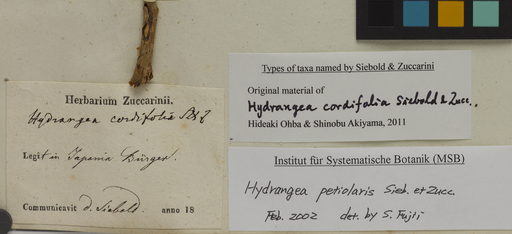 Herbarium Zuccarinii.
Hydrangea cordifolia S & Z
Legit in Japonia Bürger.
Communicavit d. Siebold. anno 18
Types of taxa named by Siebold & Zuccarini
Original material of
Hydrangea cordifolia Siebold & Zucc.,
Hideaki Ohba & Shinobu Akiyama, 2011
Institut für Systematische Botanik (MSB)
Hydrangea petiolaris Sieb. et Zucc.
Feb. 2002 det. by S. Fujii